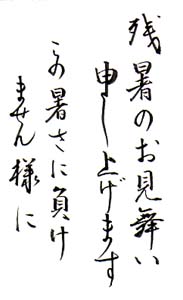 残暑のお見舞い
申し上げます
この暑さに負け
ません様に